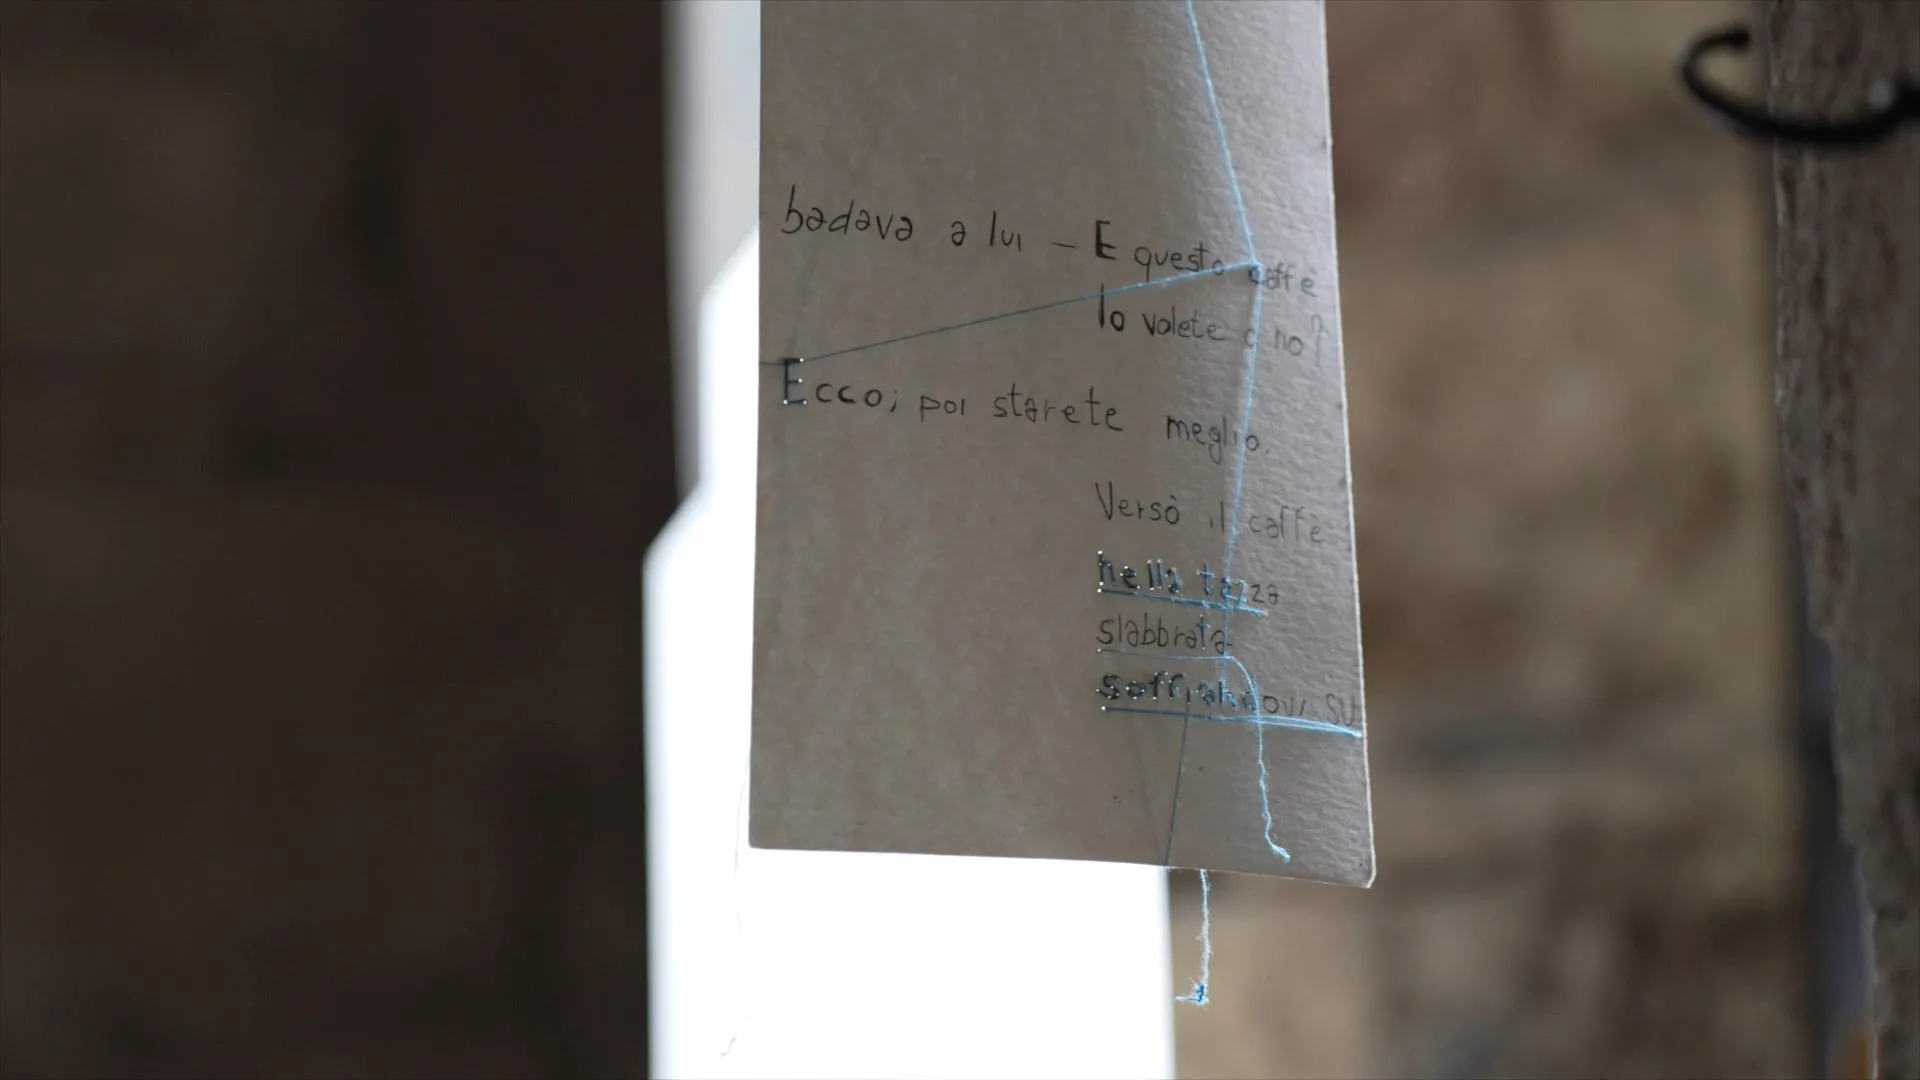 badava a lui – E questo caffè
lo volete o no?
Ecco; poi starete meglio.
Versò il caffè
nella tazza
slabbrata
soffiandovi SU